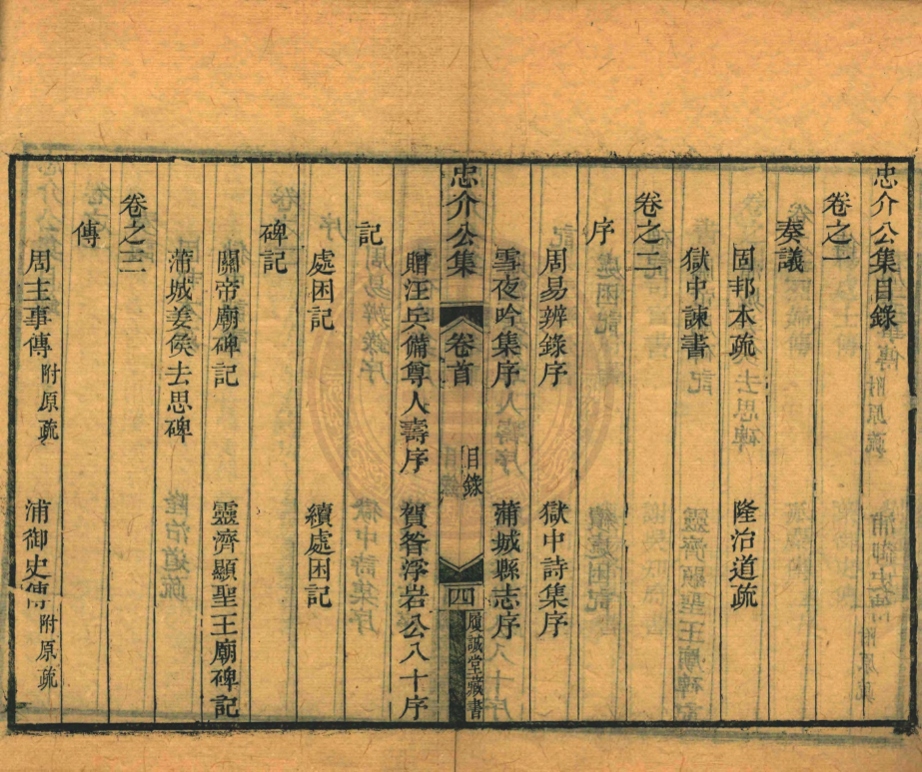 忠介公集目錄
卷之一
奏議
固邦本疏 隆治道疏
獄中諫書
卷之二
序
周易辨錄序 獄中詩集序
雪夜吟集序 蒲城縣志序
忠介公集 卷首 目錄 四 履諴堂藏書
贈汪兵備尊人壽序 賀咎浮岩公八十序
記
處困記 續處困記
碑記
關帝廟碑記 靈濟顯聖王廟碑記
蒲城姜侯去思碑
卷之三
傳
周主事傳附原疏 浦御史傳附原疏